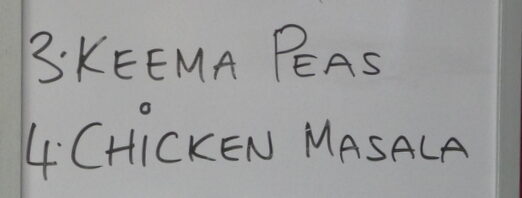 3. KEEMA PEAS
4. CHiCKEN MASALA